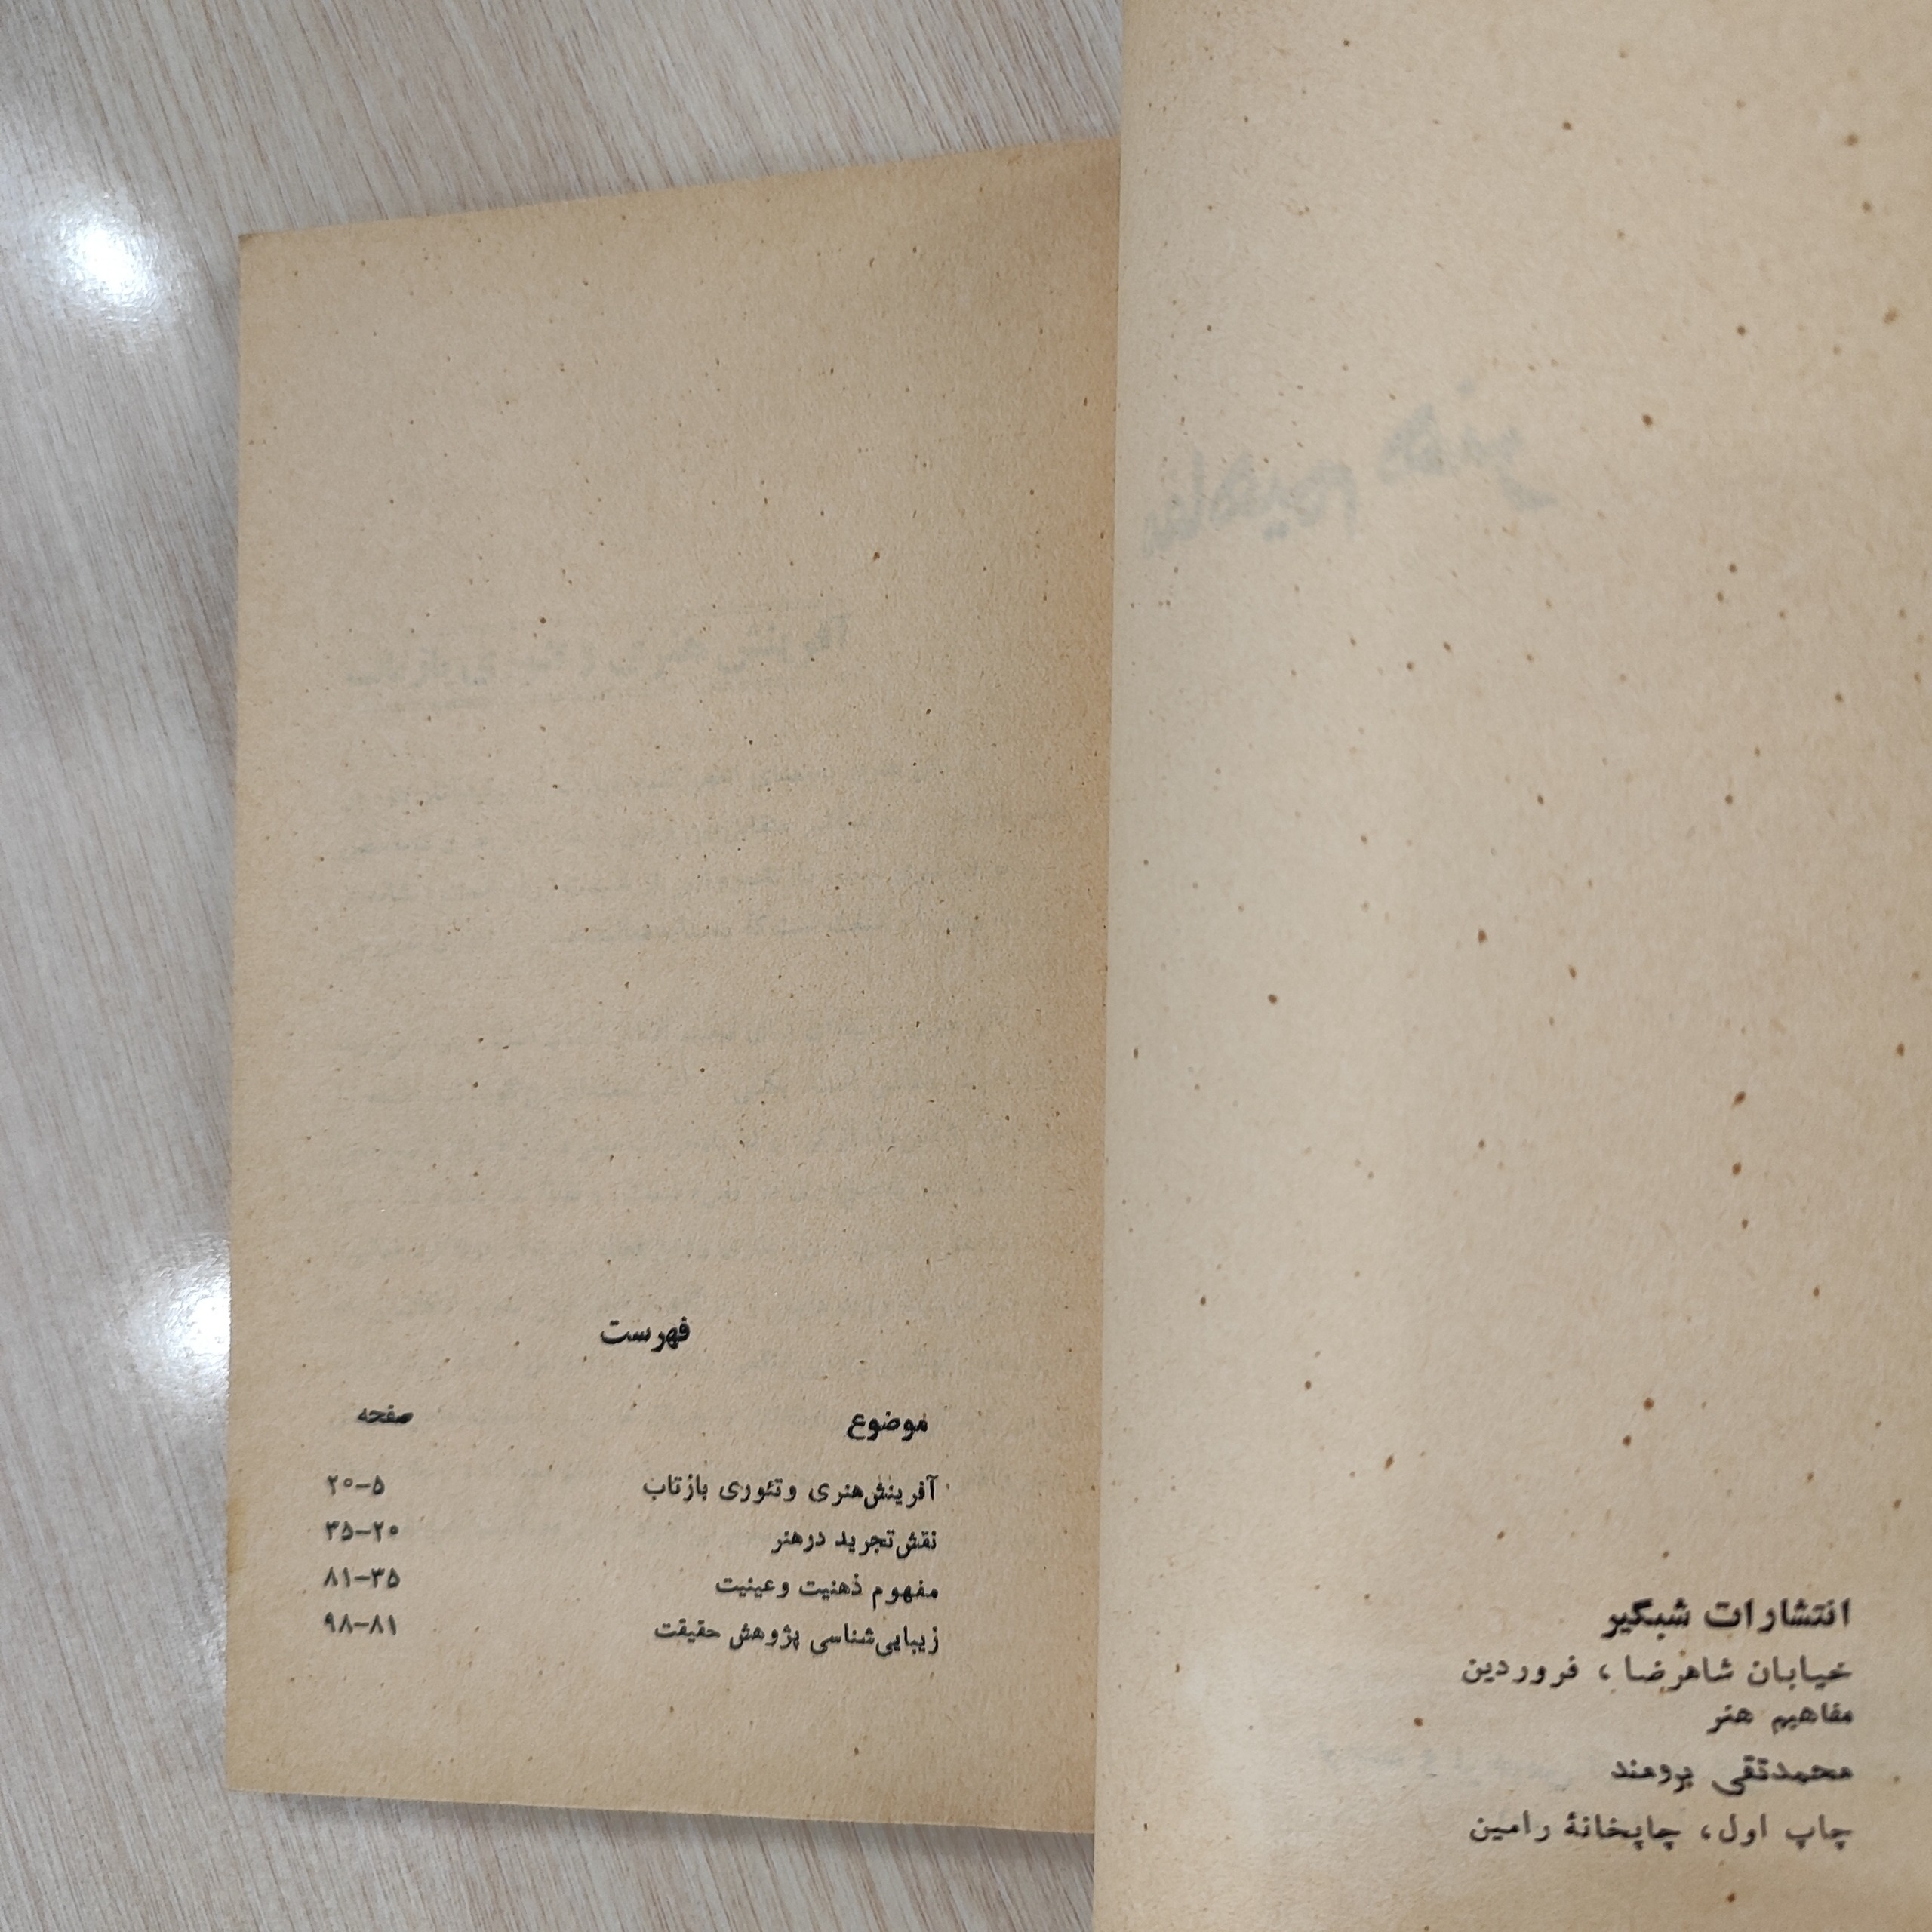 انتشارات شبگیر
خیابان شاهرضا، فروردین
مفاهیم هنر
محمدتقی برومند
چاپ اول، چاپخانهٔ رامین
فهرست
موضوع صفحه
آفرینش هنری و تئوری بازتاب ۵-۲۰
نقش تجرید در هنر ۲۰-۳۵
مفهوم ذهنیت و عینیت ۳۵-۸۱
زیبایی‌شناسی پژوهش حقیقت ۸۱-۹۸